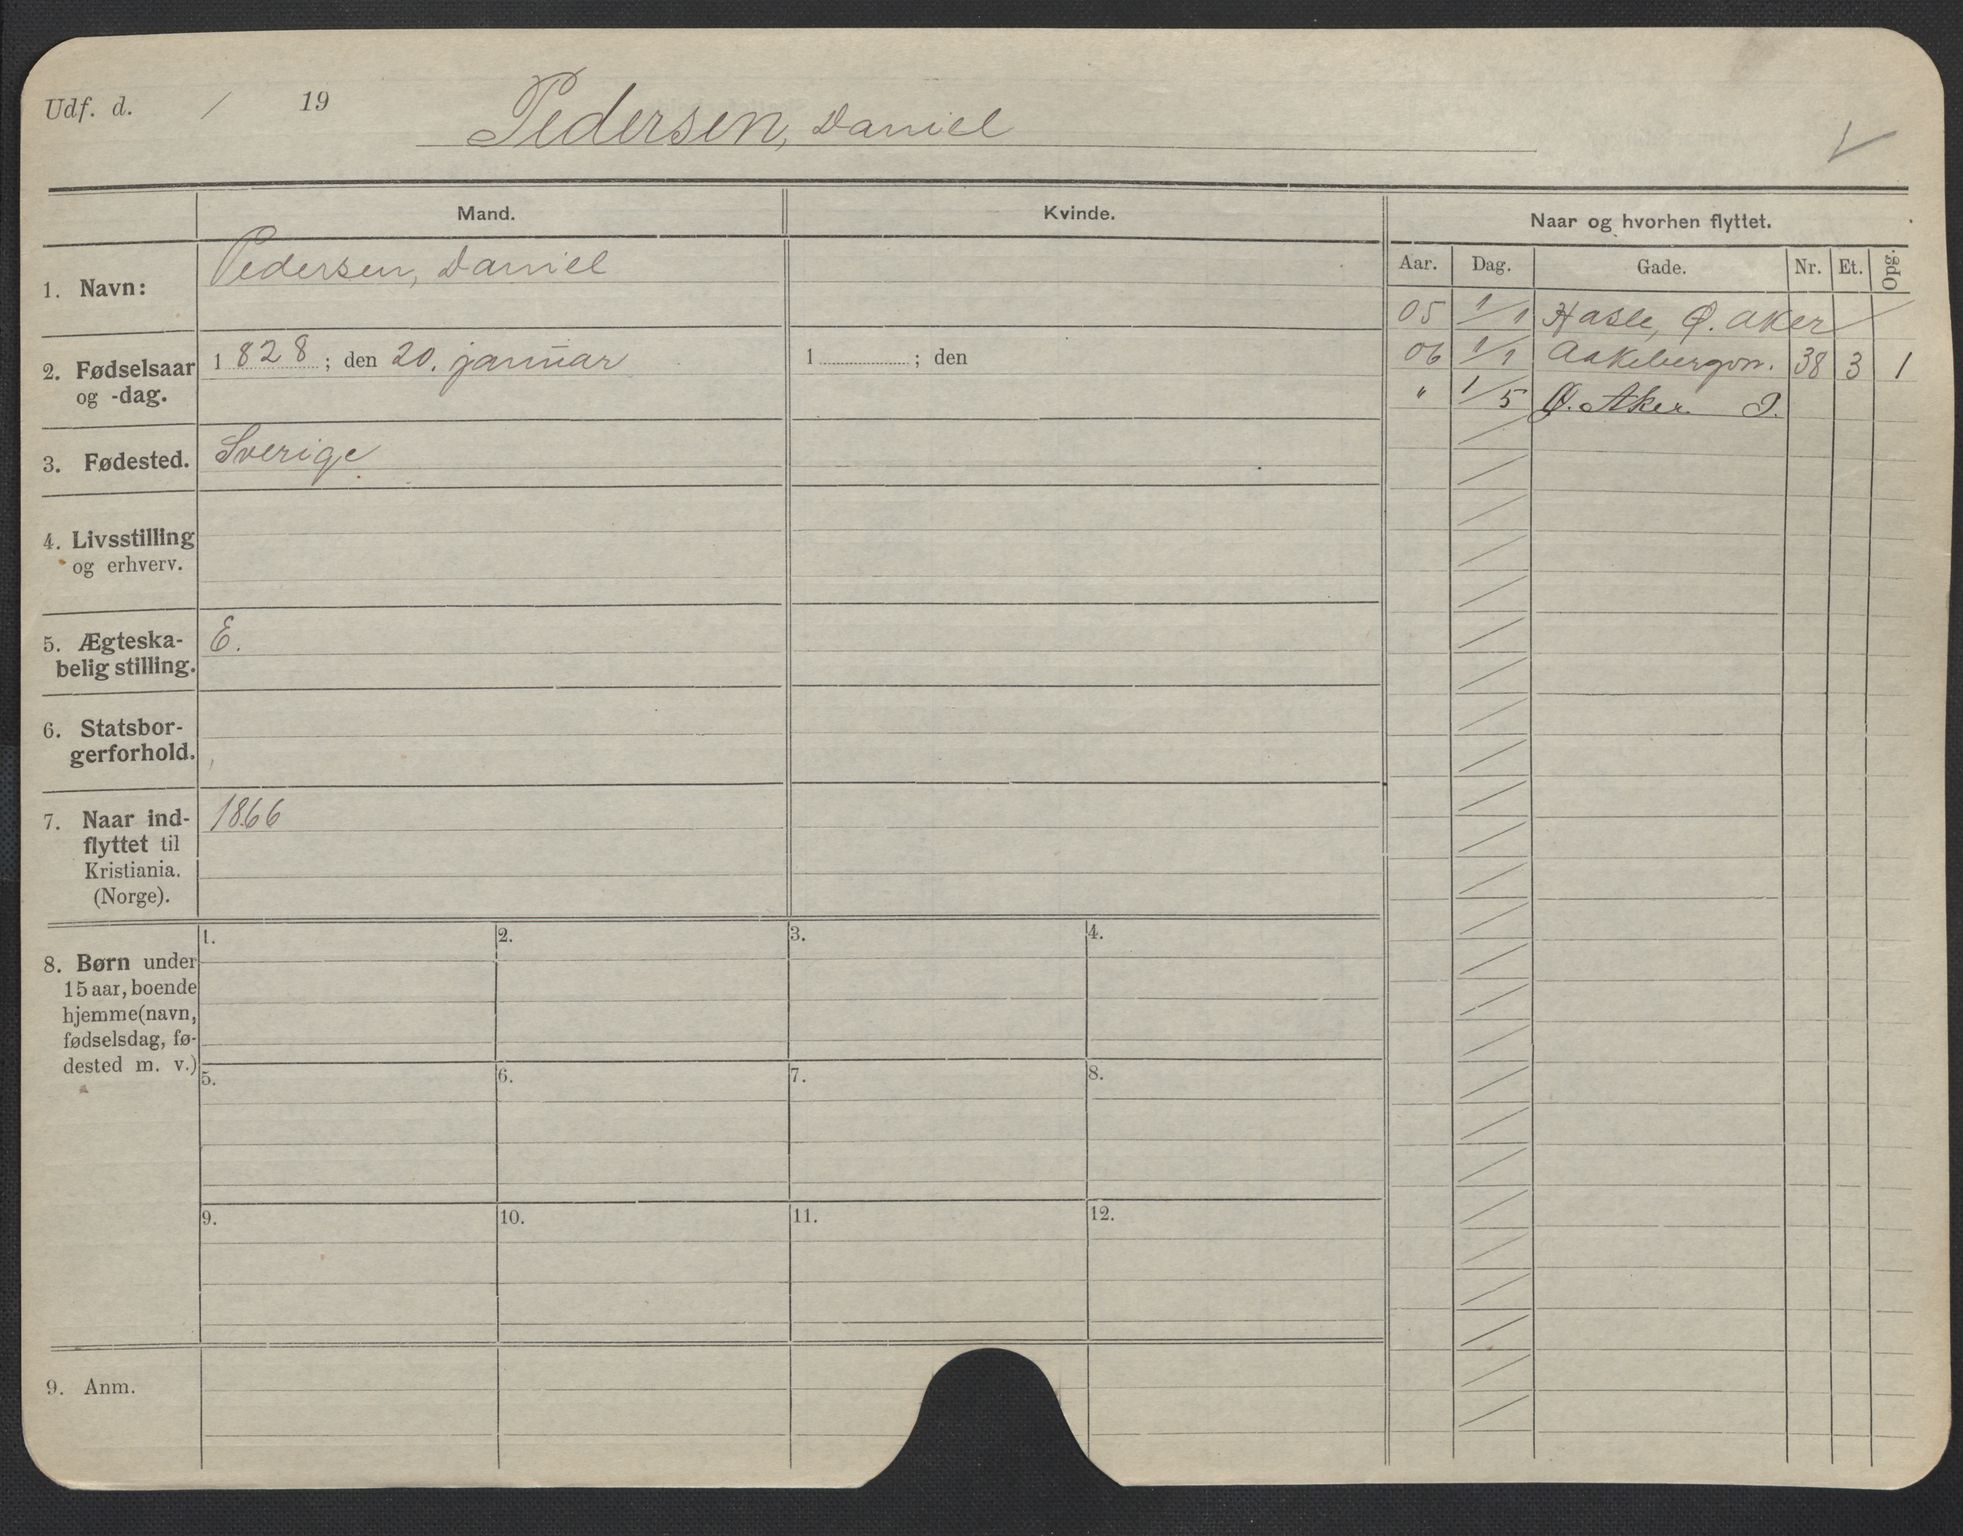 Udf. d. / 19
Pedersen, Daniel
Mand.
Kvinde.
Naar og hvorhen flyttet.
Aar. Dag. Gade. Nr. Et. Opg.
1. Navn:
Pedersen, Daniel
2. Fødselsaar
og -dag.
1828; den 20. januar
1 ; den
3. Fødested.
Sverige
4. Livsstilling
og erhverv.
5. Ægteska-
belig stilling.
E.
6. Statsbor-
gerforhold.
7. Naar ind-
flyttet til
Kristiania.
(Norge).
1866
8. Børn under
15 aar, boende
hjemme (navn,
fødselsdag, fø-
dested m. v.)
1. 2. 3. 4.
5. 6. 7. 8.
9. 10. 11. 12.
9. Anm.
05 1/1 Hasle, Ø. Aker
06 1/1 Aakebergvn. 38 3 1
" 1/5 Ø. Aker